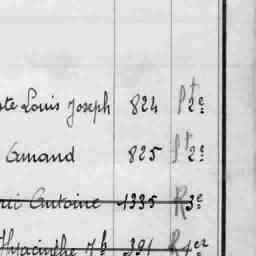 ste Louis Joseph 824 Pt 2e
Amand 825 Pt 2e
Antoine 1335 R 3e
Hyacinthe 391 R 1er